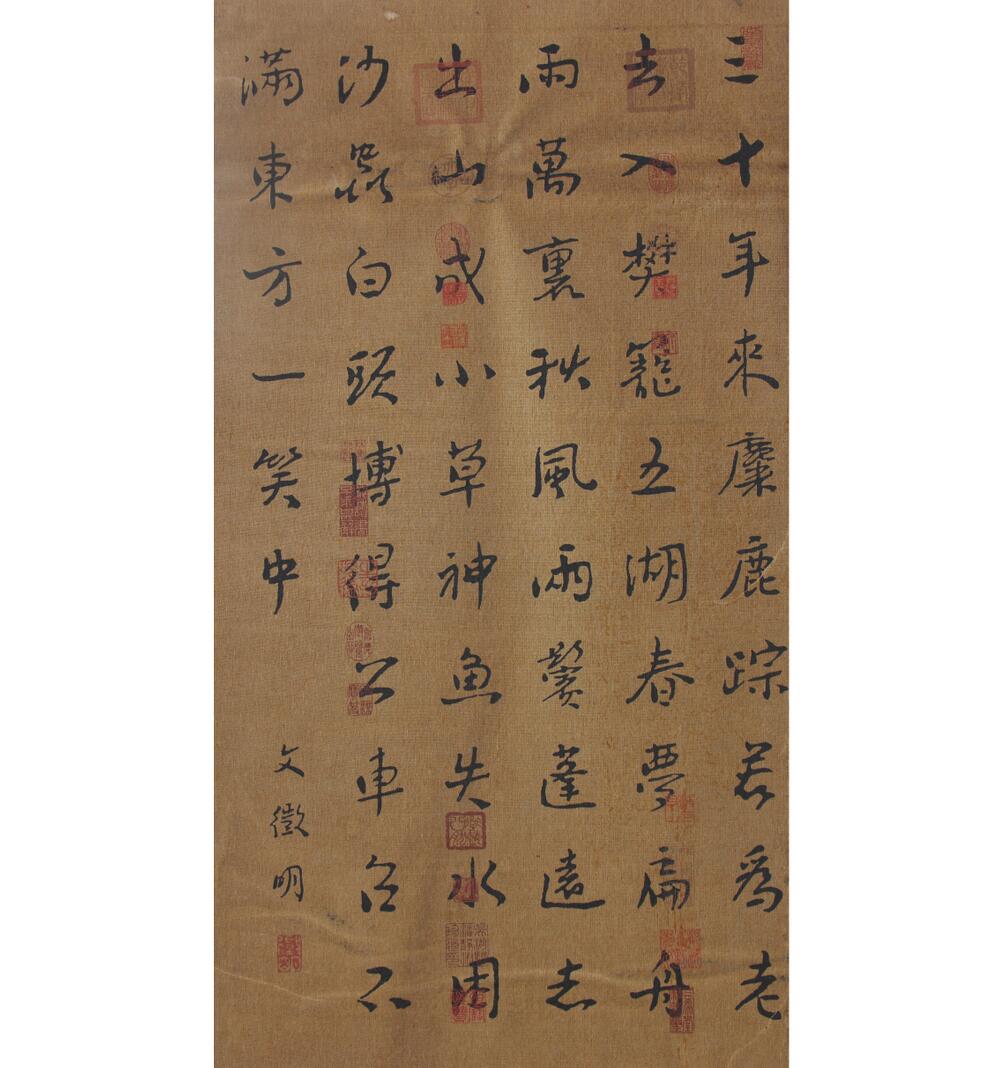 三十年來麋鹿踪若為老
去入樊籠五湖春夢扁舟
雨萬裏秋風兩鬢蓬遠志
出山成小草神魚失水困
沙蟲白頭博得公車召不
滿東方一笑中
文徵明